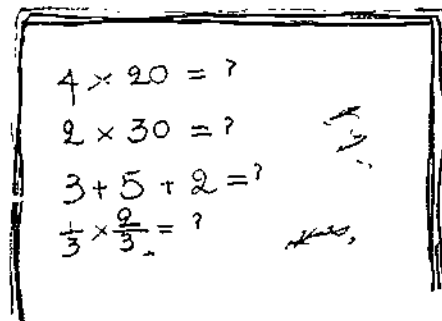 4 × 20 = ?
2 × 30 = ?
3 + 5 + 2 = ?
1/3 × 2/3 = ?